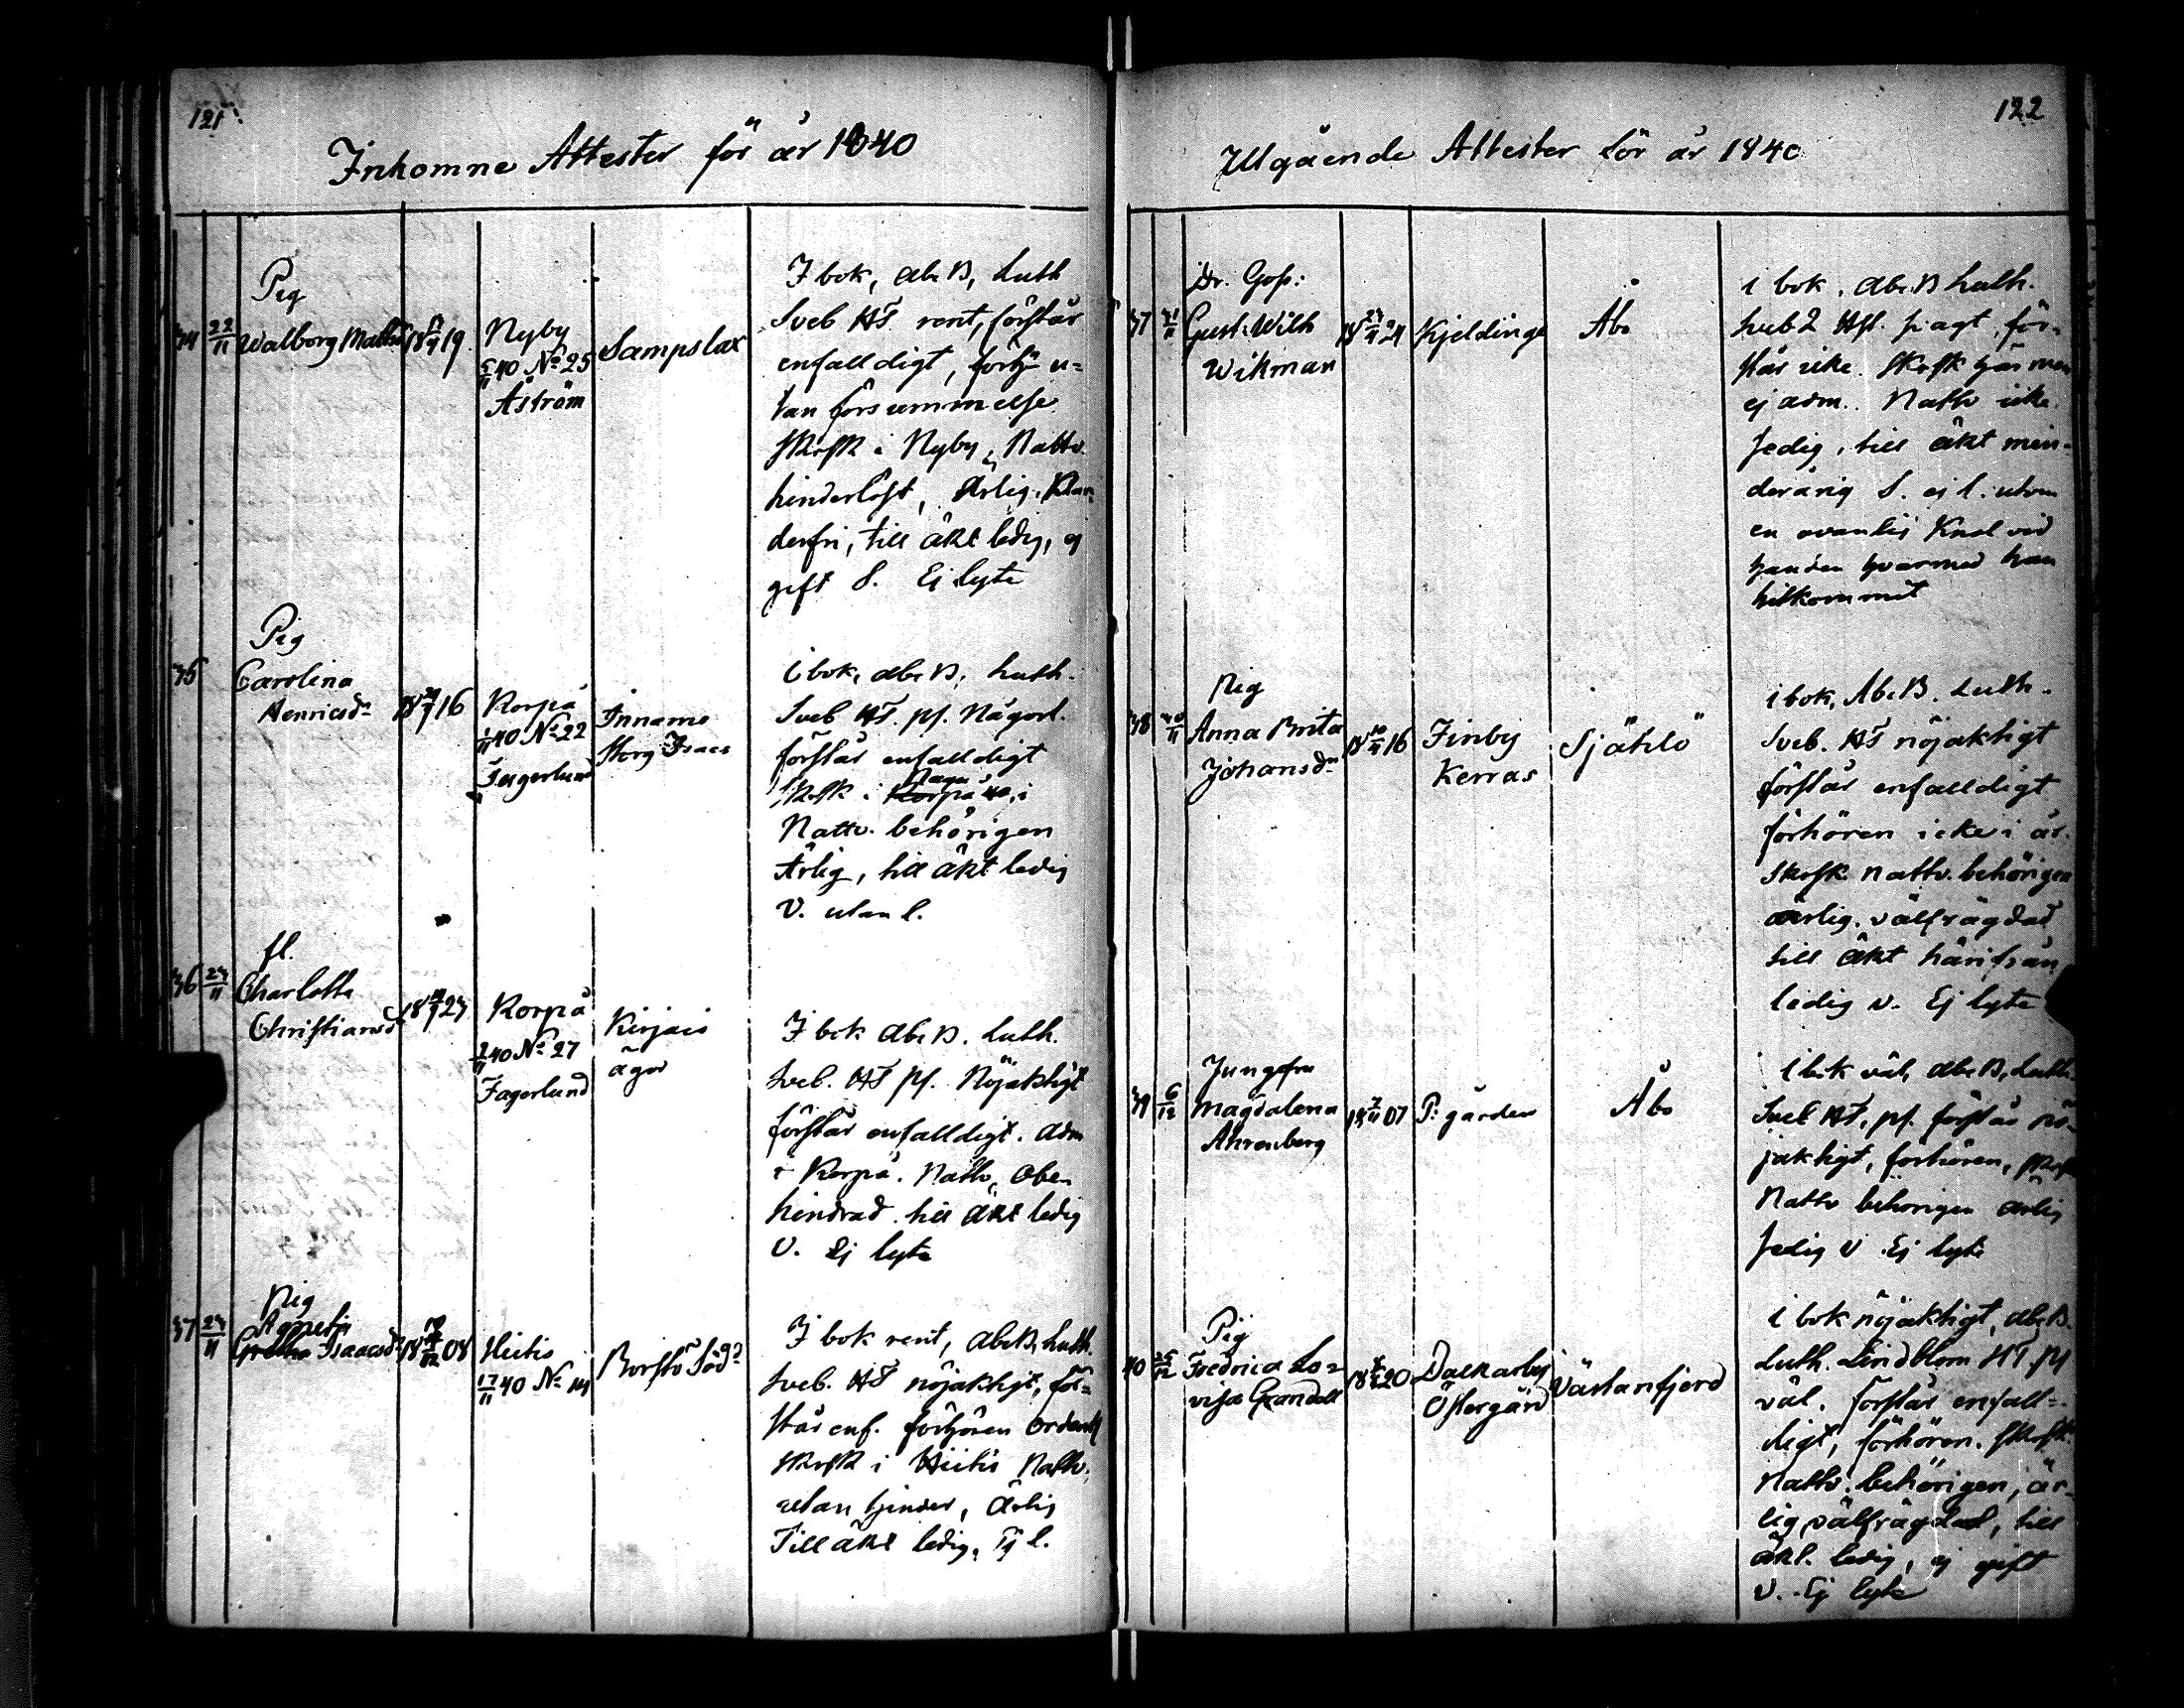 121
Inkomne Attester för år 1840
Pig
34 22/11 Walborg Matts 18 19 Nyby Sampslax
40 No 25
Åström
I bok, Abc B, Luth
Sveb HT rent, förstår
enfalldigt, förhör u=
tan försummelse
Skrsk i Nyby, Nattv.
hinderlöst, Ärlig, Klan
derfri, till äkt ledig, ej
gift S. Ej lyte
Pig
35 Carolina
Henricsdr 18 16 Korpå Innamo
40 No 22 Isacs
Fagerlund
I bok, Abc B, Luth.
Sveb HT. pf. Någorl.
förstår enfalldigt
Skrsk i Korpå
Nattv. behörigen
Ärlig, till äkt ledig
V. utan l.
fl.
36 24/11 Charlotta
Christiansd 18 24 Korpå Kirjais
40 No 27 ägor
Fagerlund
I bok Abc B. Luth.
Sveb. HT pf. Nöjaktigt
förstår enfalldigt. Adm
i Korpå. Nattv. Obe-
hindrad. till äkt ledig
V. Ej lyte
Pig
Agneta
37 24/11 Greta Isaacsdr 18 08 Hitis Borstö Södr
17/11 40 No 14
I bok rent, Abc B, Luth.
Sveb. HT nöjaktigt, för=
står enf. förhören ordentl
Skrsk i Hiitis Nattv.
utan hinder, Ärlig
Till äkt ledig, Ej l.
122
Utgående Attester för år 1840
Dr. Goss:
37 Gust: Wilh
Wikman 18 24 Kjeldinge Åbo
i bok, Abc B Luth.
Sveb 2 Hfl. i agt, för-
står icke. Skrsk här men
ej adm.. Nattv icke.
Ledig, till äkt min-
derårig S. ej l. utom
en ovanlig Knol vid
handen hvarmed han
hitkommit
Pig
38 30/11 Anna Brita
Johansdr 18 16 Finby Själö
Kerras
i bok, Abc B. Luth.
Sveb. HT nöjaktigt
förstår enfalldigt
förhören icke i år.
Skrsk Nattv. behörigen
ärlig. välfrägdad
till äkt härifrån
ledig v. Ej lyte
Jungfru
39 6/12 Magdalena
Ahrenberg 18 07 P:gården Åbo
I bok väl, Abc B, Luth.
Sveb HT, pf. förstår nö-
jaktigt, förhören, Skrsk
Nattv behörigen ärlig
Ledig V. Ej lyte
Pig
40 Fredrica Lo=
visa Grandell 18 20 Dalkarby Västanfjerd
Östergård
I bok nöjaktigt, Abc B.
Luth. Lindblom HT. pf
väl. förstår enfall=
digt, förhören. Skrsk.
Nattv. behörigen, är-
lig välfrägdad, till
äkt. ledig, ej gift
V. Ej lyte